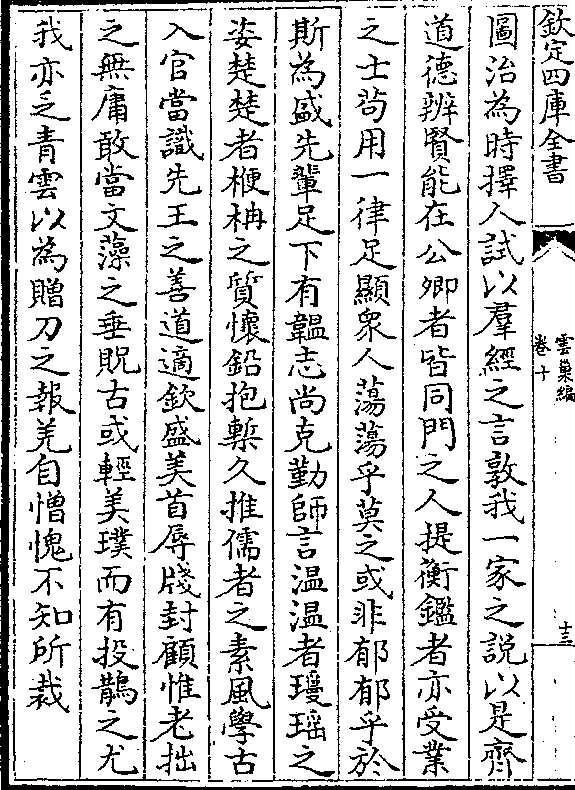 欽定四庫全書
雲巢編
卷十
十三
圖治為時擇人試以羣經之言敦我一家之說以是齊
道德辨賢能在公卿者皆同門之人提衡鑑者亦受業
之士茍用一律足顯衆人蕩蕩乎莫之或非郁郁乎於
斯為盛先輩足下有韞志尚克勤師言温温者璦瑶之
姿楚楚者楩柟之質懷鉛抱槧久推儒者之素風學古
入官當識先王之善道適欽盛美首辱牋封顧惟老拙
之無庸敢當文藻之垂貺古或輕美璞而有投鵲之尤
我亦乏青雲以為贈刀之報羌自憎愧不知所裁